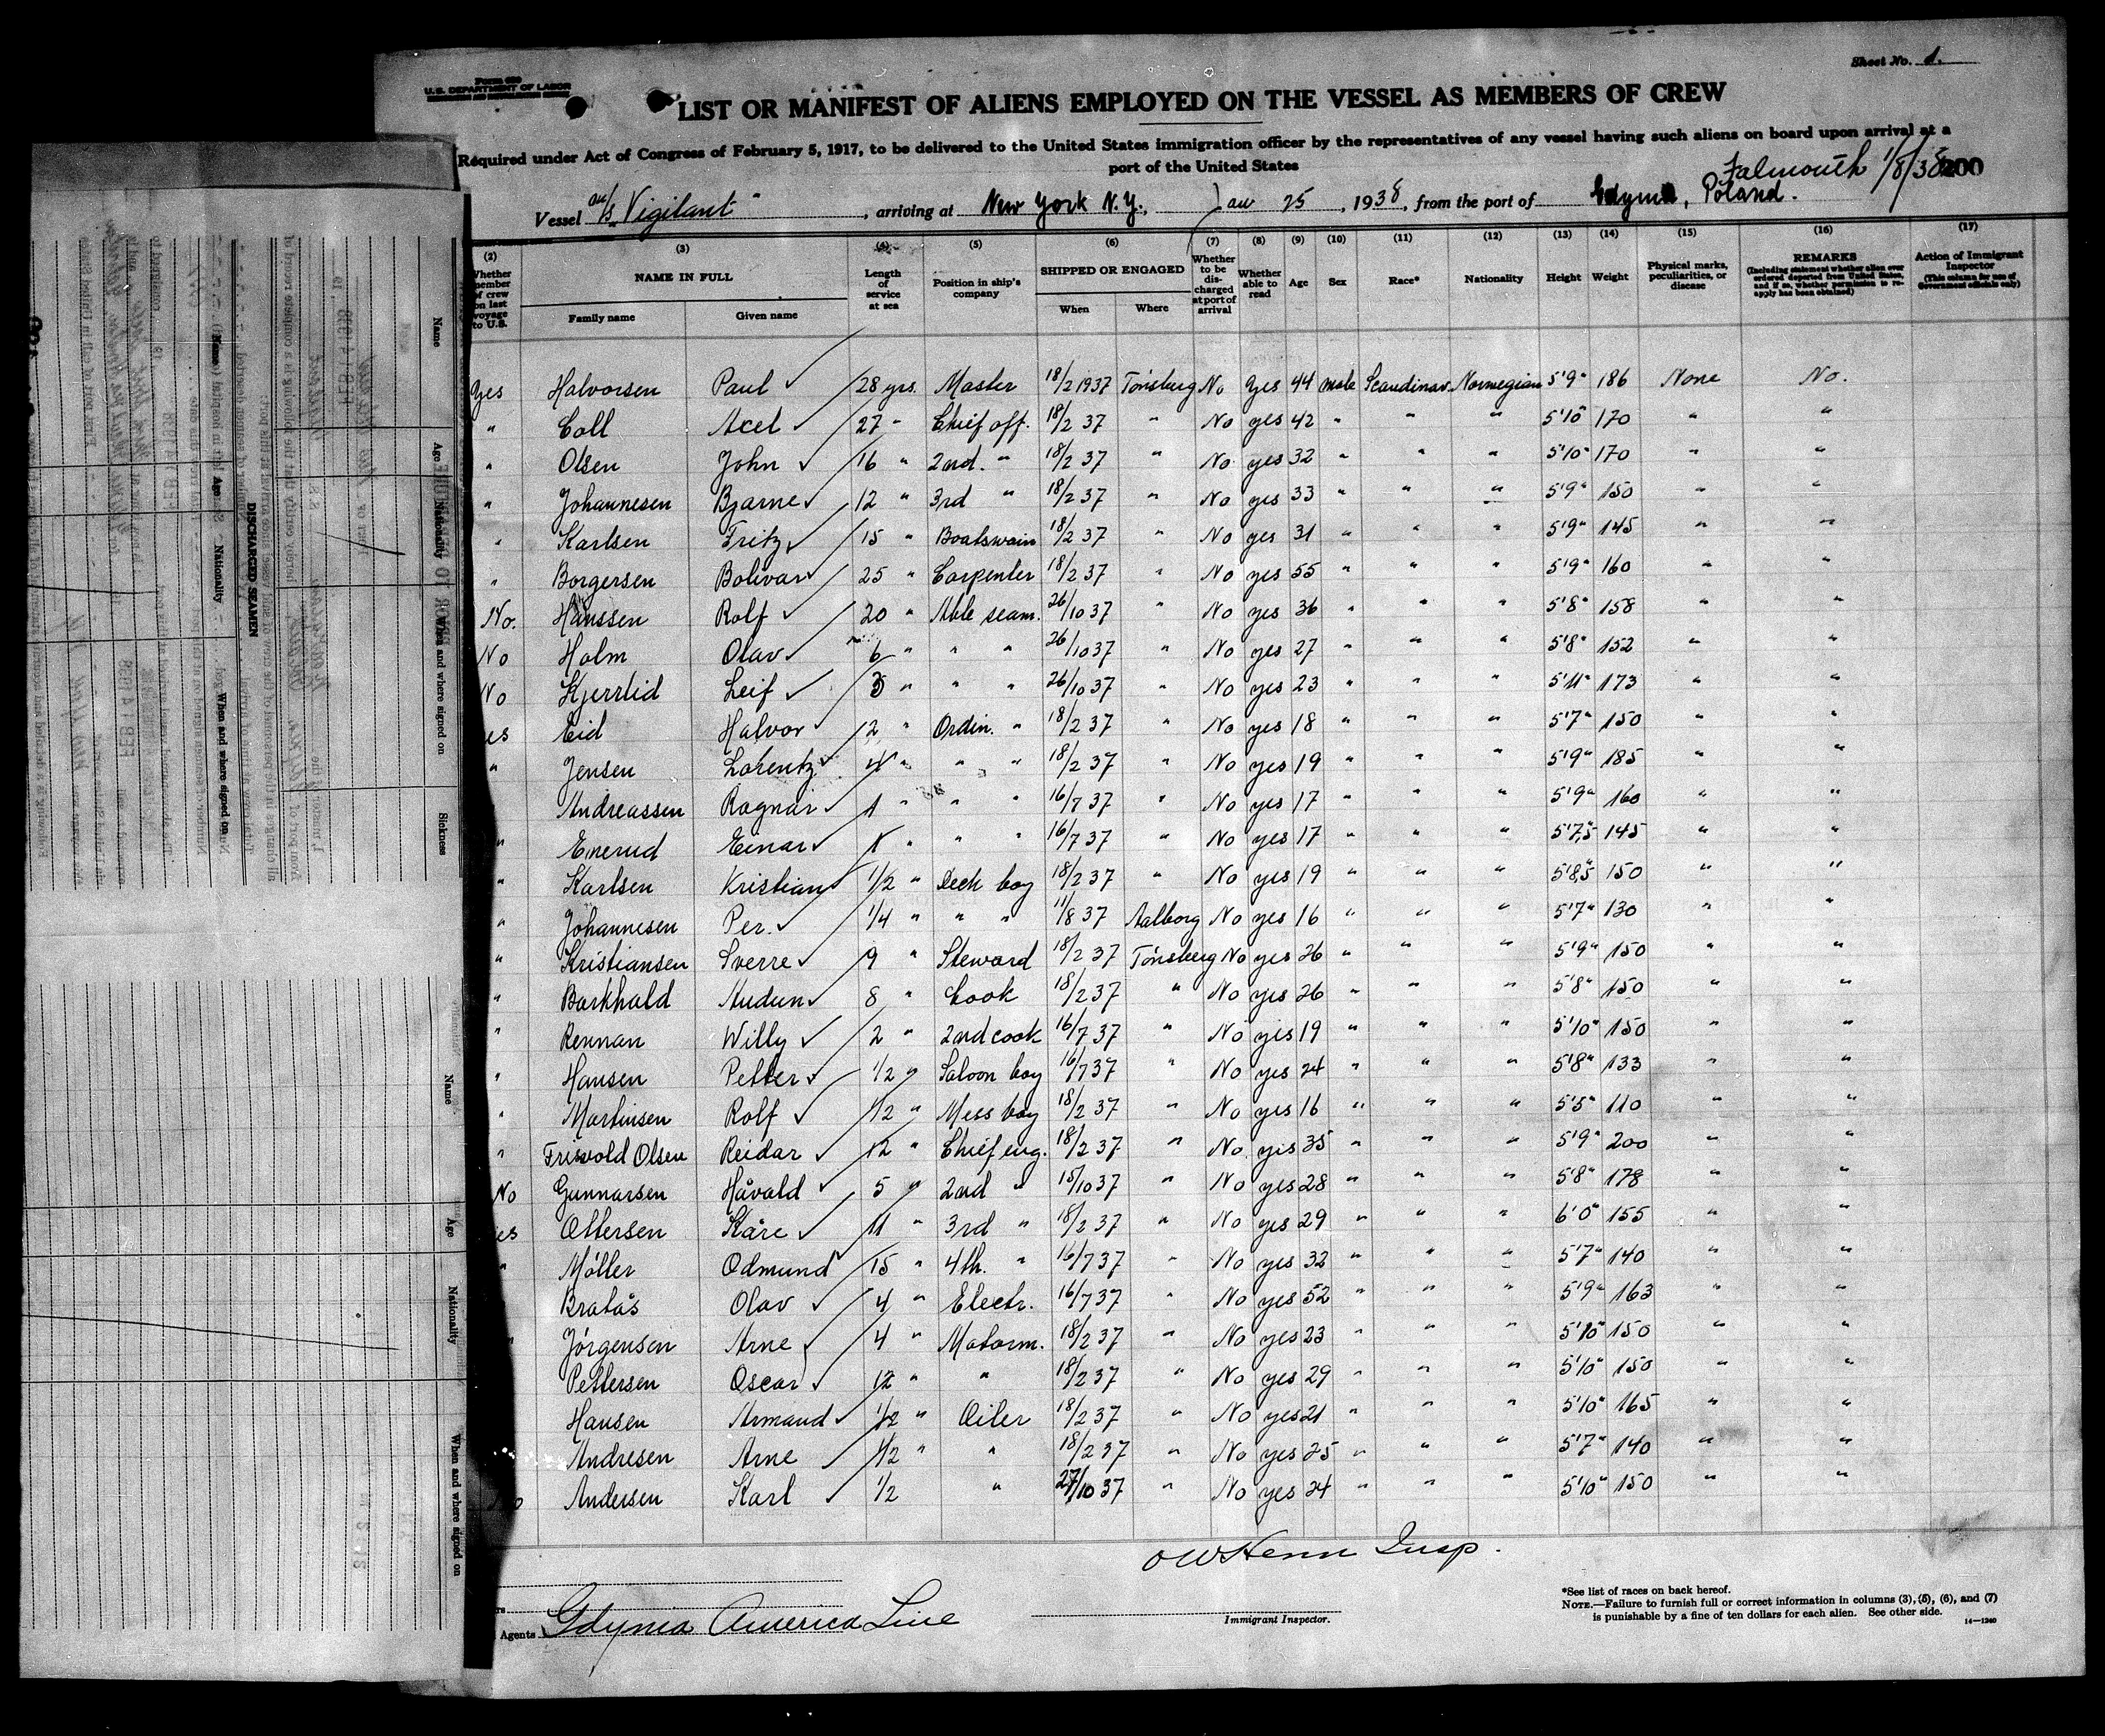 Sheet No. 1.
Form 680
U.S. DEPARTMENT OF LABOR
LIST OR MANIFEST OF ALIENS EMPLOYED ON THE VESSEL AS MEMBERS OF CREW
Required under Act of Congress of February 5, 1917, to be delivered to the United States immigration officer by the representatives of any vessel having such aliens on board upon arrival at a
port of the United States
Falmouth 1/8/38 200
Vessel m/s "Vigilant", arriving at New York N.Y., Jan 25, 1938, from the port of Gdynia, Poland.
(2) (3) (4) (5) (6) (7) (8) (9) (10) (11) (12) (13) (14) (15) (16) (17)
Whether member of crew on last voyage to U.S. NAME IN FULL Family name Given name Length of service at sea Position in ship's company SHIPPED OR ENGAGED When Where Whether to be discharged at port of arrival Whether able to read Age Sex Race* Nationality Height Weight Physical marks, peculiarities, or disease REMARKS (Including statement whether alien ever ordered deported from United States, and if so, whether permission to reapply has been obtained) Action of Immigrant Inspector (This column for use of Government officials only)
Yes Halvorsen Paul 28 yrs. Master 18/2 1937 Tönsberg No Yes 44 male Scandinav. Norwegian 5'9" 186 None No.
" Coll Axel 27 " Chief off. 18/2 37 " No yes 42 " " " 5'10 170 " "
" Olsen John 16 " 2nd. " 18/2 37 " No yes 32 " " " 5'10" 170 " "
" Johannesen Bjarne 12 " 3rd " 18/2 37 " No yes 33 " " " 5'9" 150 " "
" Karlsen Fritz 15 " Boatswain 18/2 37 " No yes 31 " " " 5'9" 145 " "
" Borgersen Bolivar 25 " Carpenter 18/2 37 " No yes 55 " " " 5'9" 160 " "
No. Hanssen Rolf 20 " Able seam. 26/10 37 " No yes 36 " " " 5'8" 158 " "
No Holm Olav 6 " " " 26/10 37 " No yes 27 " " " 5'8" 152 " "
No Kjerrlid Leif " " " 26/10 37 " No yes 23 " " " 5'11" 173 " "
es Eid Halvor 2 " Ordin. " 18/2 37 " No yes 18 " " " 5'7" 150 " "
" Jensen Lorentz " " " 18/2 37 " No yes 19 " " " 5'9" 185 " "
Andreassen Ragnar 1 " " " 16/7 37 " No yes 17 " " " 5'9" 160 " "
" Enerud Einar 1 " " " 16/7 37 " No yes 17 " " " 5'7,5 145 " "
" Karlsen Kristian 1/2 " Deck boy 18/2 37 " No yes 19 " " " 5'8,5 150 " "
" Johannesen Per. 1/4 " " " 11/8 37 Aalborg No yes 16 " " " 5'7" 130 " "
" Kristiansen Sverre 9 " Steward 18/2 37 Tönsberg No yes 26 " " " 5'9" 150 " "
" Barkhald Audun 8 " Cook 18/2 37 " No yes 26 " " " 5'8" 150 " "
" Rennan Willy 2 " 2nd cook 16/7 37 " No yes 19 " " " 5'10" 150 " "
" Hansen Petter 1/2 " Saloon boy 16/7 37 " No yes 24 " " " 5'8" 133 " "
" Martinsen Rolf 1/2 " Mess boy 18/2 37 " No yes 16 " " " 5'5" 110 " "
" Frisvold Olsen Reidar 12 " Chief eng. 18/2 37 " No yes 35 " " " 5'9" 200 " "
No Gunnarsen Håvald 5 " 2nd " 15/10 37 " No yes 28 " " " 5'8" 178 " "
es Ottersen Kåre 11 " 3rd " 18/2 37 " No yes 29 " " " 6'0" 155 " "
" Möller Odmund 15 " 4th. " 16/7 37 " No yes 32 " " " 5'7" 140 " "
Bratås Olav 4 " Electr. 16/7 37 " No yes 52 " " " 5'9" 163 " "
" Jörgensen Arne 4 " Motorm. 18/2 37 " No yes 23 " " " 5'10" 150 " "
Pettersen Oscar 12 " " 18/2 37 " No yes 29 " " " 5'10" 150 " "
Hansen Armand 1/2 " Oiler 18/2 37 " No yes 21 " " " 5'10" 165 " "
Andresen Arne 1/2 " " 18/2 37 " No yes 25 " " " 5'7" 140 " "
o Andersen Karl 1/2 " 27/10 37 " No yes 24 " " " 5'10" 150 " "
OW Henn Insp.
Immigrant Inspector.
Agents Gdynia America Line
*See list of races on back hereof.
NOTE.—Failure to furnish full or correct information in columns (3), (5), (6), and (7)
is punishable by a fine of ten dollars for each alien. See other side.
14—1240
Name Age Nationality When and where signed on Sickness
DISCHARGED SEAMEN
Name Age Nationality When and where signed on
Name Age Nationality When and where signed on